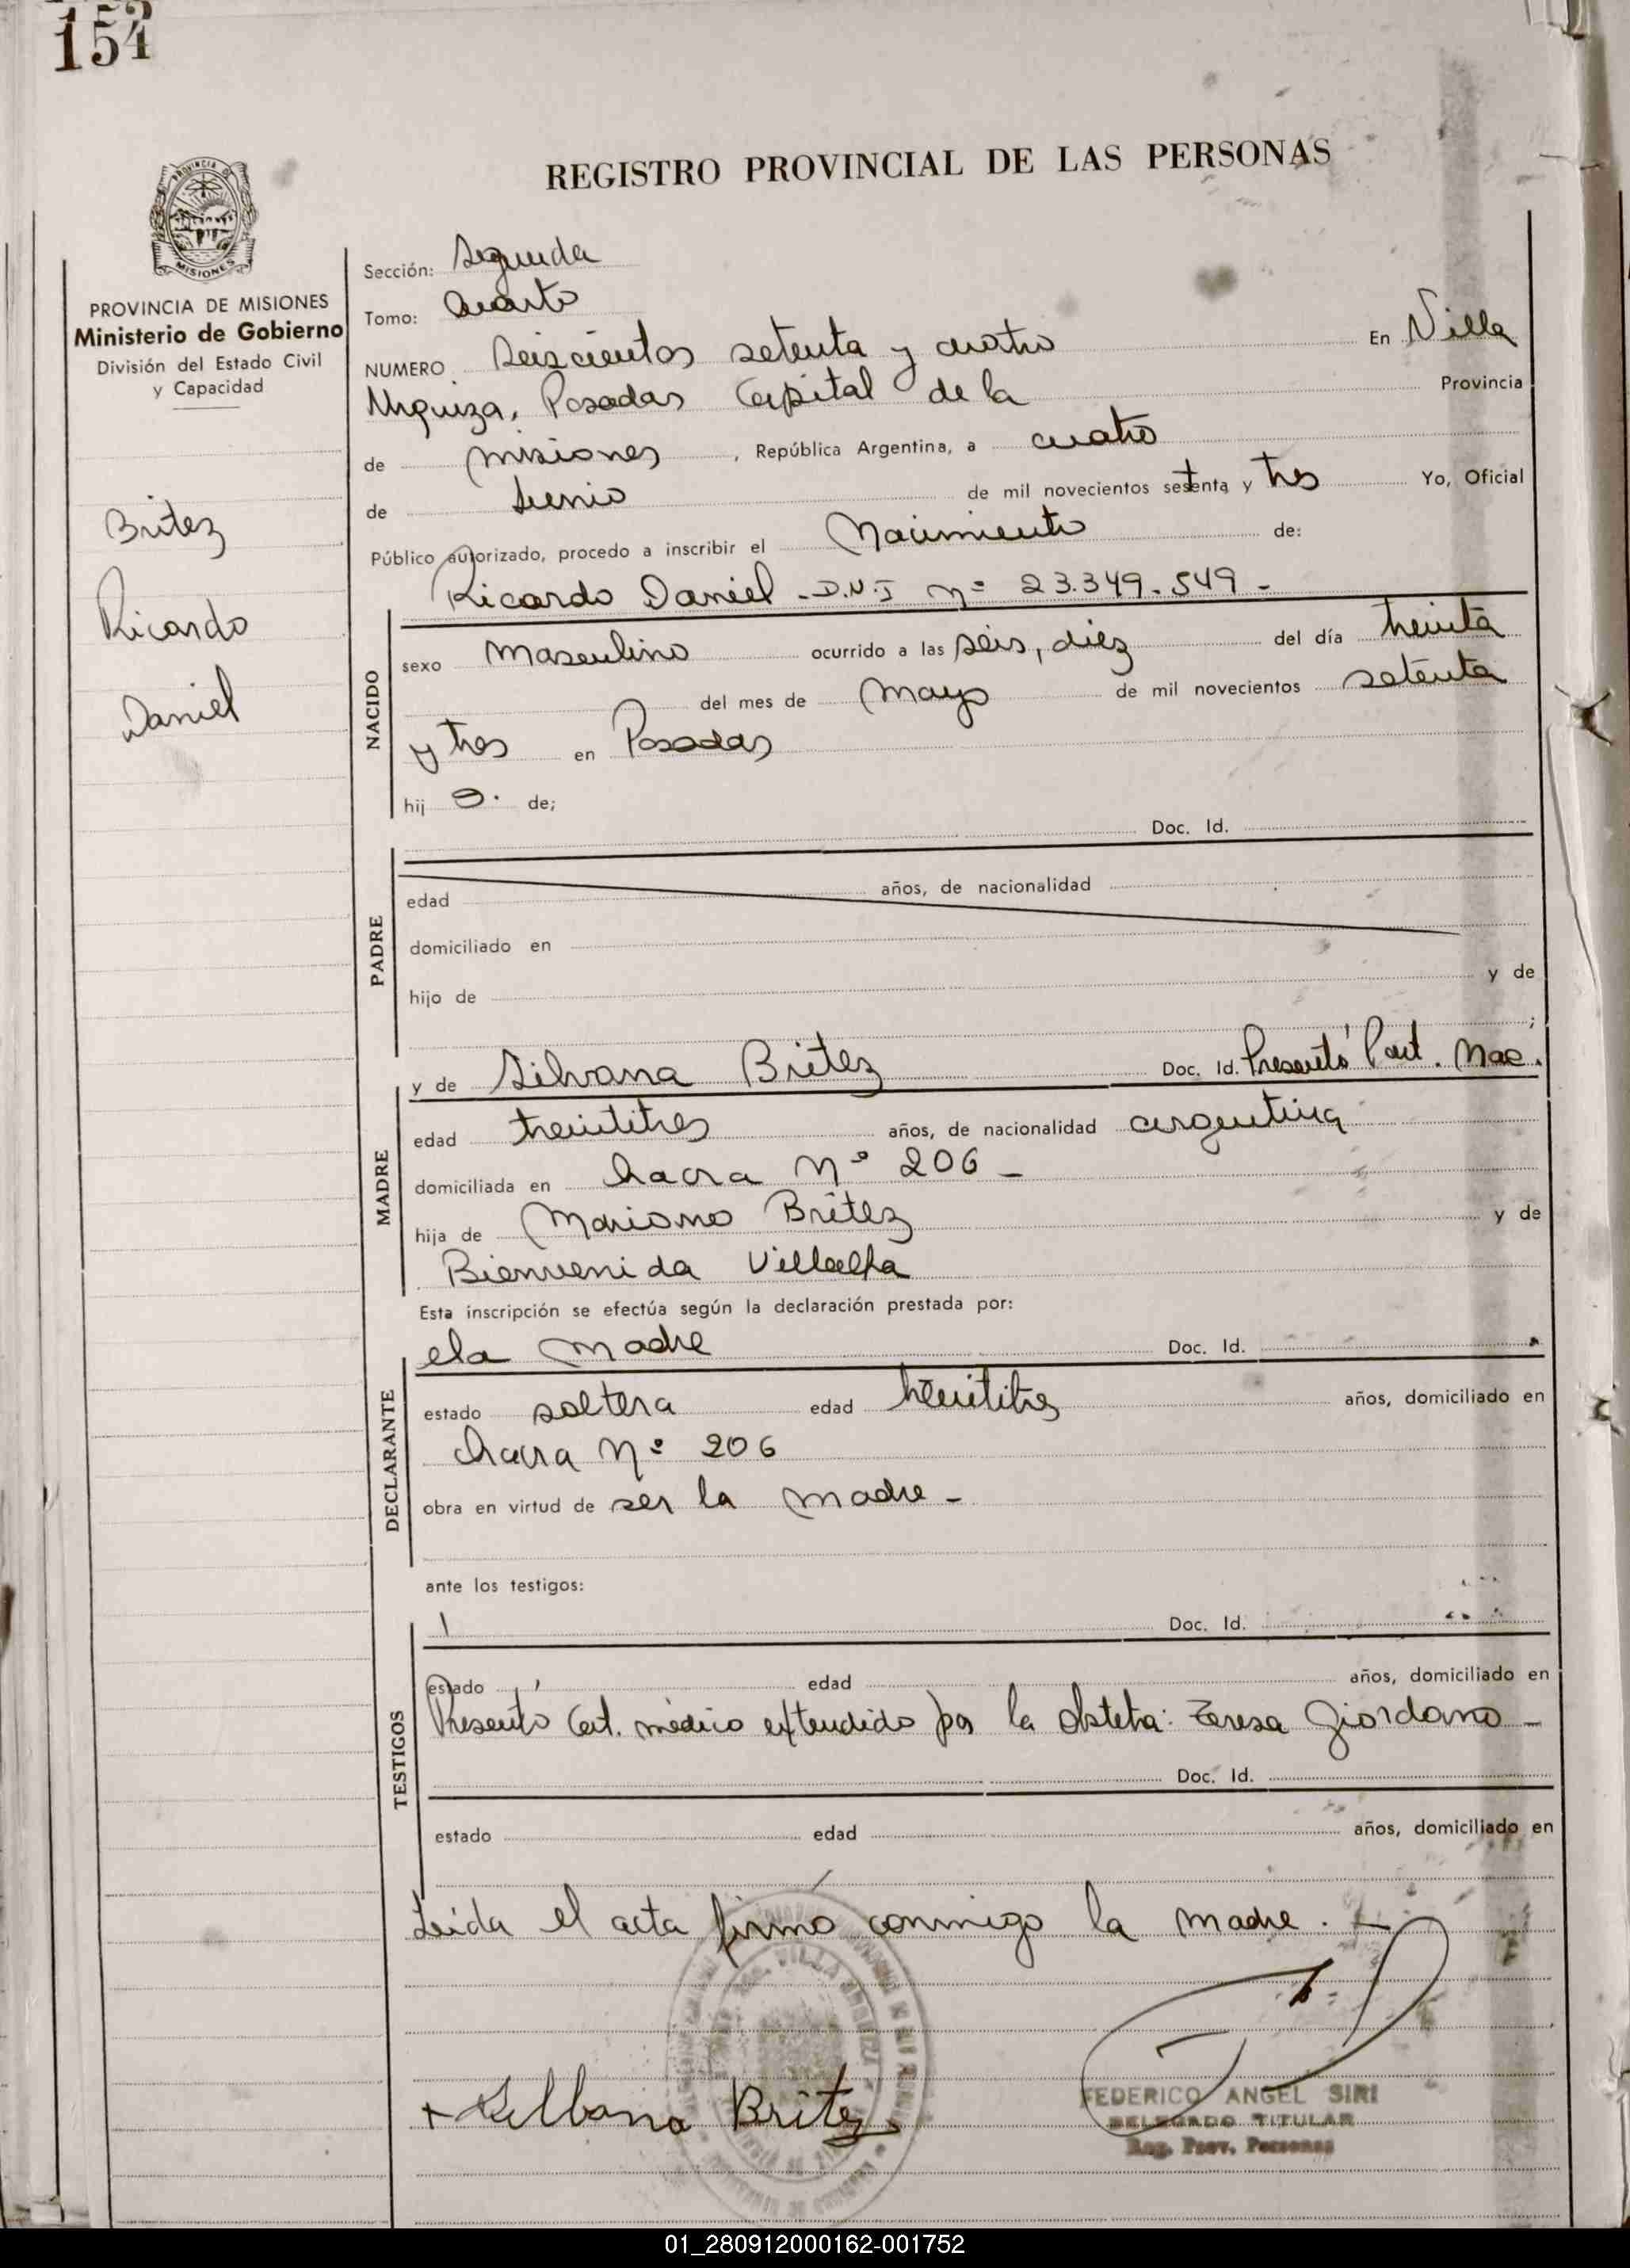 154
REGISTRO PROVINCIAL DE LAS PERSONAS
PROVINCIA DE MISIONES
Ministerio de Gobierno
División del Estado Civil
y Capacidad
Britez
Ricardo
Daniel
Sección: Segunda
Tomo: Cuarto
NUMERO Seiscientos setenta y cuatro En Villa
Urquiza, Posadas Capital de la Provincia
de misiones, República Argentina, a cuatro
de Junio de mil novecientos setenta y tres Yo, Oficial
Público autorizado, procedo a inscribir el Nacimiento de:
Ricardo Daniel - D.N.I nº 23.349.549 -
NACIDO
sexo masculino ocurrido a las seis, diez del día treinta
del mes de mayo de mil novecientos setenta
y tres en Posadas
hijo. de;
Doc. Id.
PADRE
edad años, de nacionalidad
domiciliado en
hijo de y de
;
MADRE
y de Silvana Britez Doc. Id. Presentó Part. Nac.
edad treintitres años, de nacionalidad argentina
domiciliada en chacra Nº 206 -
hija de Mariano Britez y de
Bienvenida Villalba
Esta inscripción se efectúa según la declaración prestada por:
DECLARANTE
la madre Doc. Id.
estado soltera edad treintitres años, domiciliado en
chacra Nº 206
obra en virtud de ser la madre -
ante los testigos:
TESTIGOS
Doc. Id.
estado edad años, domiciliado en
Presentó Cert. médico extendido por la obstetra: Teresa Giordano -
Doc. Id.
estado edad años, domiciliado en
Leida el acta firmó conmigo la madre. -
+ Silbana Britez
FEDERICO ANGEL SIRI
DELEGADO TITULAR
Reg. Prov. Personas
01_280912000162-001752